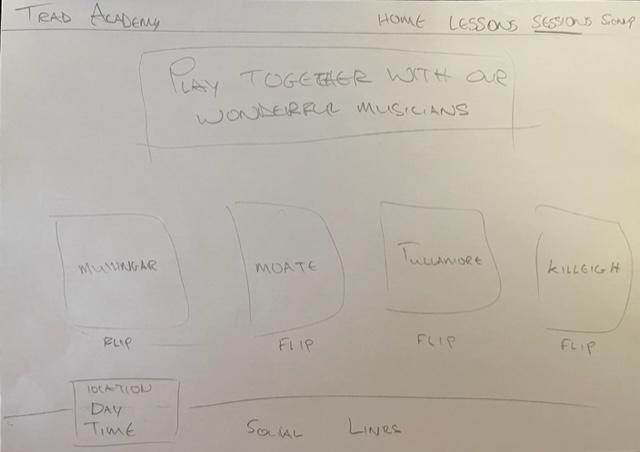 TRAD ACADEMY
HOME LESSONS SESSIONS
PLAY TOGETHER WITH OUR
WONDERFUL MUSICIANS
MULLINGAR MOATE TULLAMORE KILLEIGH
FLIP FLIP FLIP FLIP
LOCATION
DAY
TIME
SOCIAL LINKS